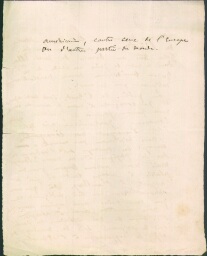 américains, contre ceux de l'Europe
ou d'autres parties du monde.